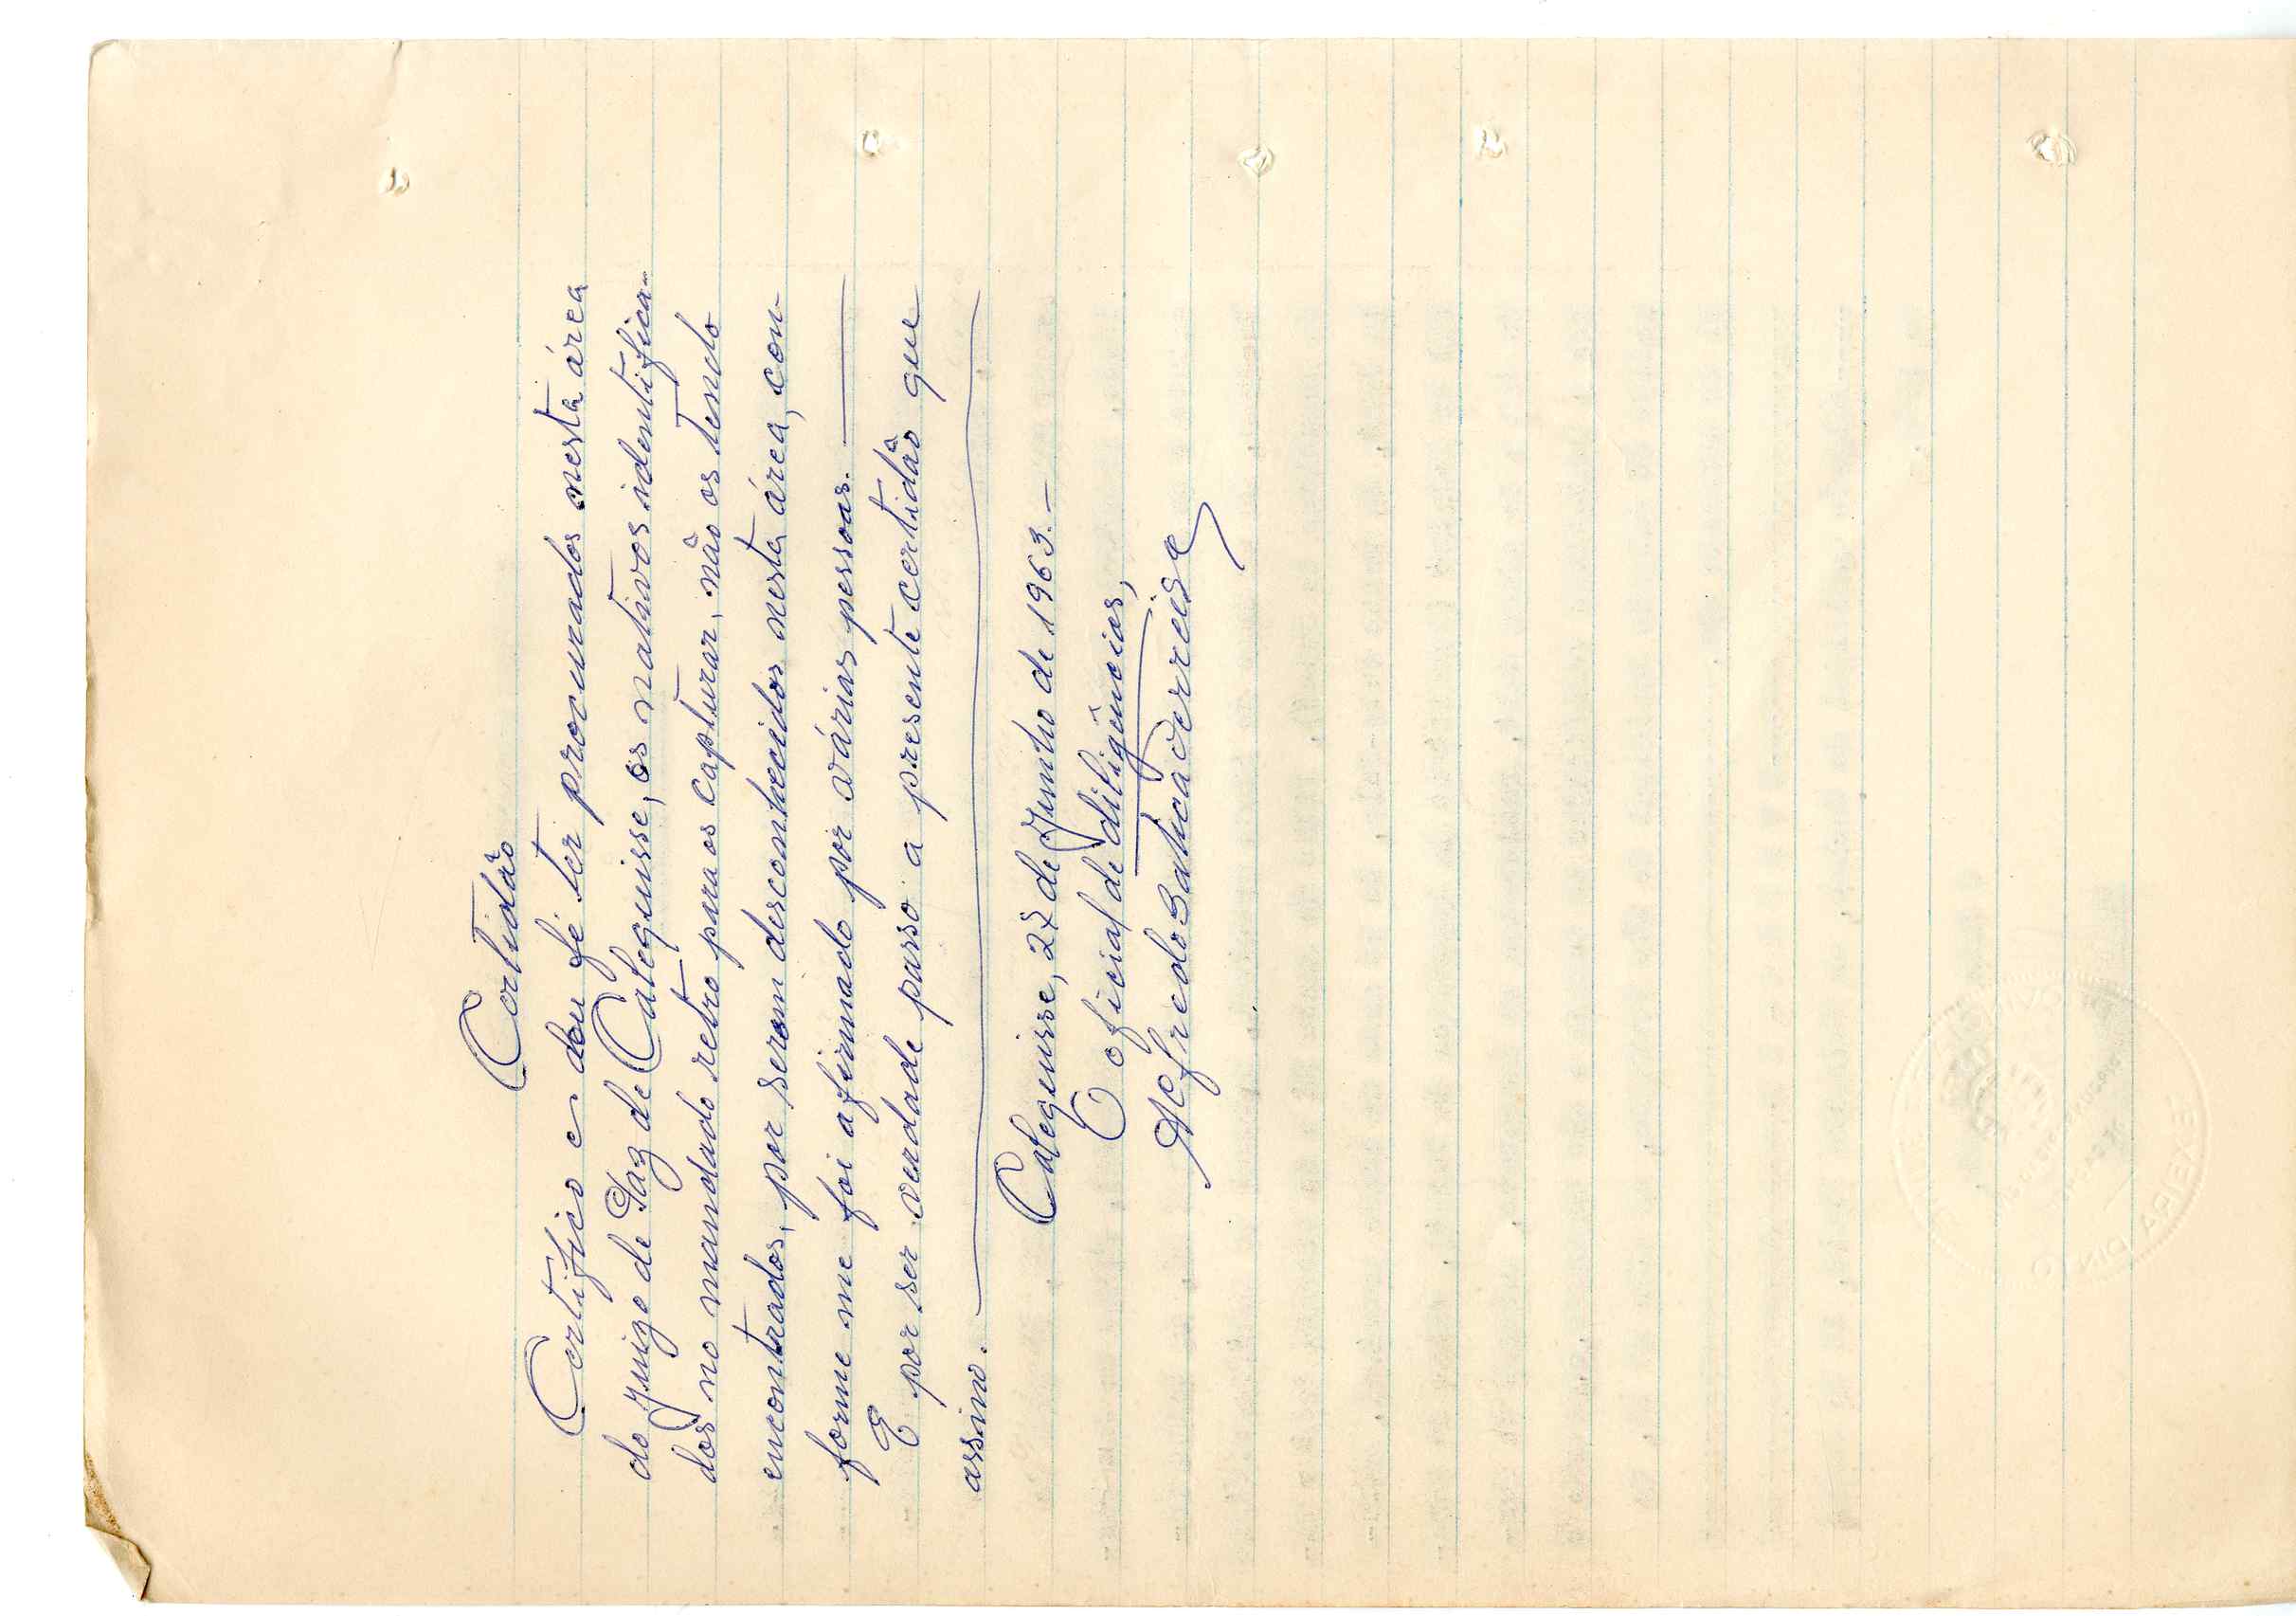 Certidão
Certifico e dou fé ter procurados nesta área
do Juizo de Paz de Calequisse, os nativos identifica-
dos no mandado retro para os capturar, não os tendo
encontrados, por serem desconhecidos nesta área, con-
forme me foi afirmado por várias pessoas.
E por ser verdade passo a presente certidão que
assino.
Calequisse, 27 de Junho de 1963.-
O oficial de diligências,
Alfredo
TEIXEIRA PINTO